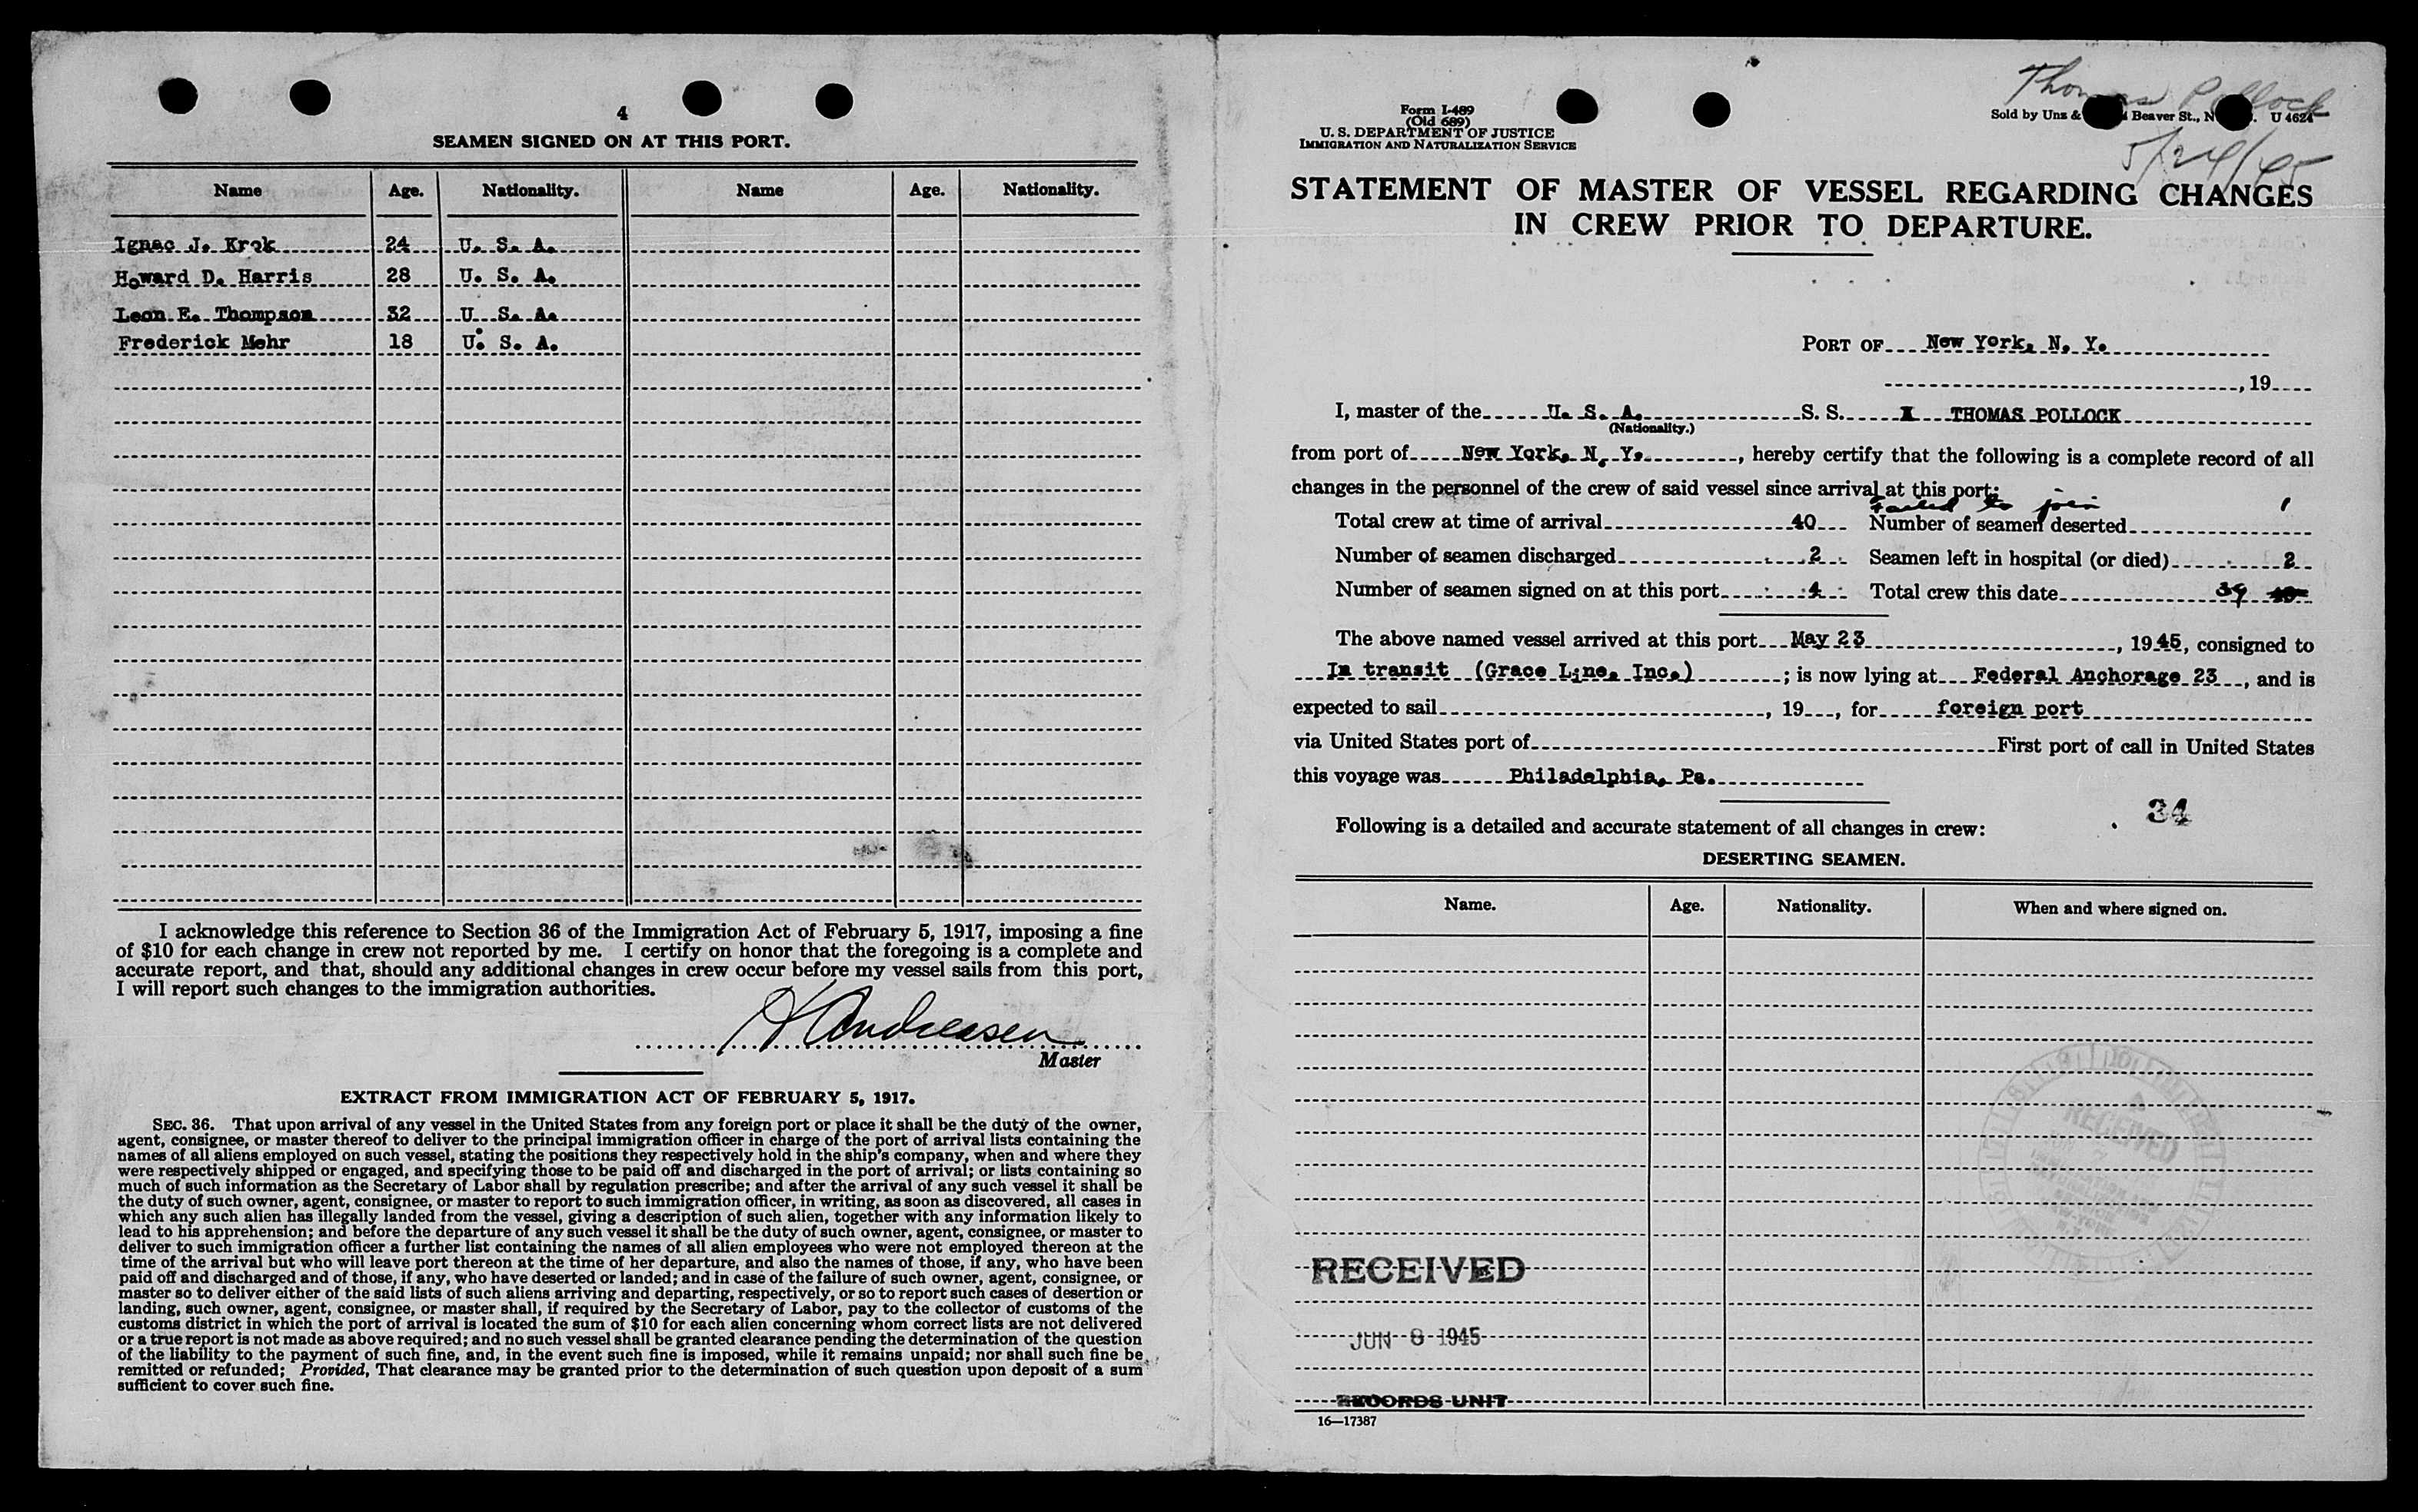 4
SEAMEN SIGNED ON AT THIS PORT.
Name Age. Nationality. Name Age. Nationality.
Ignac J. Krok 24 U. S. A.
Howard D. Harris 28 U. S. A.
Leon E. Thompson 32 U. S. A.
Frederick Mehr 18 U. S. A.
I acknowledge this reference to Section 36 of the Immigration Act of February 5, 1917, imposing a fine
of $10 for each change in crew not reported by me. I certify on honor that the foregoing is a complete and
accurate report, and that, should any additional changes in crew occur before my vessel sails from this port,
I will report such changes to the immigration authorities.
H Andreasen
Master
EXTRACT FROM IMMIGRATION ACT OF FEBRUARY 5, 1917.
SEC. 36. That upon arrival of any vessel in the United States from any foreign port or place it shall be the duty of the owner,
agent, consignee, or master thereof to deliver to the principal immigration officer in charge of the port of arrival lists containing the
names of all aliens employed on such vessel, stating the positions they respectively hold in the ship's company, when and where they
were respectively shipped or engaged, and specifying those to be paid off and discharged in the port of arrival; or lists containing so
much of such information as the Secretary of Labor shall by regulation prescribe; and after the arrival of any such vessel it shall be
the duty of such owner, agent, consignee, or master to report to such immigration officer, in writing, as soon as discovered, all cases in
which any such alien has illegally landed from the vessel, giving a description of such alien, together with any information likely to
lead to his apprehension; and before the departure of any such vessel it shall be the duty of such owner, agent, consignee, or master to
deliver to such immigration officer a further list containing the names of all alien employees who were not employed thereon at the
time of the arrival but who will leave port thereon at the time of her departure, and also the names of those, if any, who have been
paid off and discharged and of those, if any, who have deserted or landed; and in case of the failure of such owner, agent, consignee, or
master so to deliver either of the said lists of such aliens arriving and departing, respectively, or so to report such cases of desertion or
landing, such owner, agent, consignee, or master shall, if required by the Secretary of Labor, pay to the collector of customs of the
customs district in which the port of arrival is located the sum of $10 for each alien concerning whom correct lists are not delivered
or a true report is not made as above required; and no such vessel shall be granted clearance pending the determination of the question
of the liability to the payment of such fine, and, in the event such fine is imposed, while it remains unpaid; nor shall such fine be
remitted or refunded; Provided, That clearance may be granted prior to the determination of such question upon deposit of a sum
sufficient to cover such fine.
Thomas Pollock
5/24/45
Form I-489
(Old 689)
U. S. DEPARTMENT OF JUSTICE
IMMIGRATION AND NATURALIZATION SERVICE
Sold by Unz & Beaver St., N U 4624
STATEMENT OF MASTER OF VESSEL REGARDING CHANGES
IN CREW PRIOR TO DEPARTURE.
PORT OF New York, N. Y.
, 19
I, master of the U. S. A. S. S. X THOMAS POLLOCK
(Nationality.)
from port of New York, N. Y. , hereby certify that the following is a complete record of all
changes in the personnel of the crew of said vessel since arrival at this port:
Failed to join
Total crew at time of arrival 40 Number of seamen deserted 1
Number of seamen discharged 2 Seamen left in hospital (or died) 2
Number of seamen signed on at this port 4 Total crew this date 39
The above named vessel arrived at this port May 23 , 1945, consigned to
In transit (Grace Line, Inc.) ; is now lying at Federal Anchorage 23 , and is
expected to sail , 19 , for foreign port
via United States port of First port of call in United States
this voyage was Philadelphia, Pa.
34
Following is a detailed and accurate statement of all changes in crew:
DESERTING SEAMEN.
Name. Age. Nationality. When and where signed on.
RECEIVED
RECEIVED
JUN 8 1945
RECORDS UNIT
16—17387